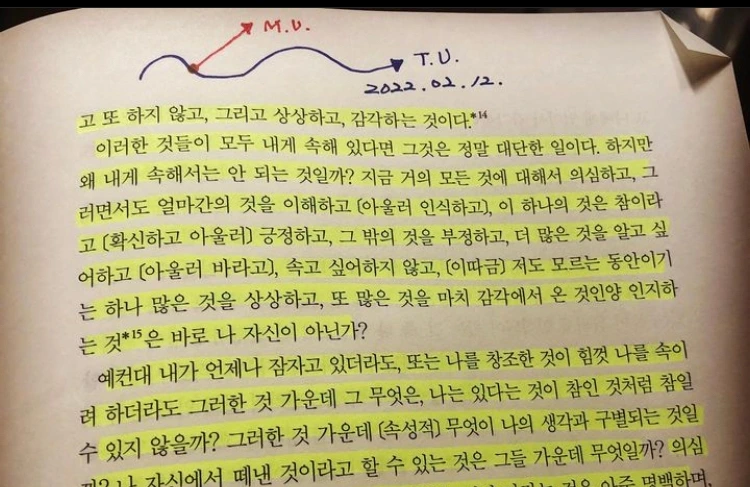 M.U.
T.U.
2022.02.12.
고 또 하지 않고, 그리고 상상하고, 감각하는 것이다.*14
이러한 것들이 모두 내게 속해 있다면 그것은 정말 대단한 일이다. 하지만
왜 내게 속해서는 안 되는 것일까? 지금 거의 모든 것에 대해서 의심하고, 그
러면서도 얼마간의 것을 이해하고 (아울러 인식하고), 이 하나의 것은 참이라
고 (확신하고 아울러) 긍정하고, 그 밖의 것을 부정하고, 더 많은 것을 알고 싶
어하고 (아울러 바라고), 속고 싶어하지 않고, (이따금) 저도 모르는 동안이기
는 하나 많은 것을 상상하고, 또 많은 것을 마치 감각에서 온 것인양 인지하
는 것*15은 바로 나 자신이 아닌가?
예컨대 내가 언제나 잠자고 있더라도, 또는 나를 창조한 것이 힘껏 나를 속이
려 하더라도 그러한 것 가운데 그 무엇은, 나는 있다는 것이 참인 것처럼 참일
수 있지 않을까? 그러한 것 가운데 (속성적) 무엇이 나의 생각과 구별되는 것일
까? 나 자신에서 떼낸 것이라고 할 수 있는 것은 그들 가운데 무엇일까? 의심
것은 아주 명백하며,